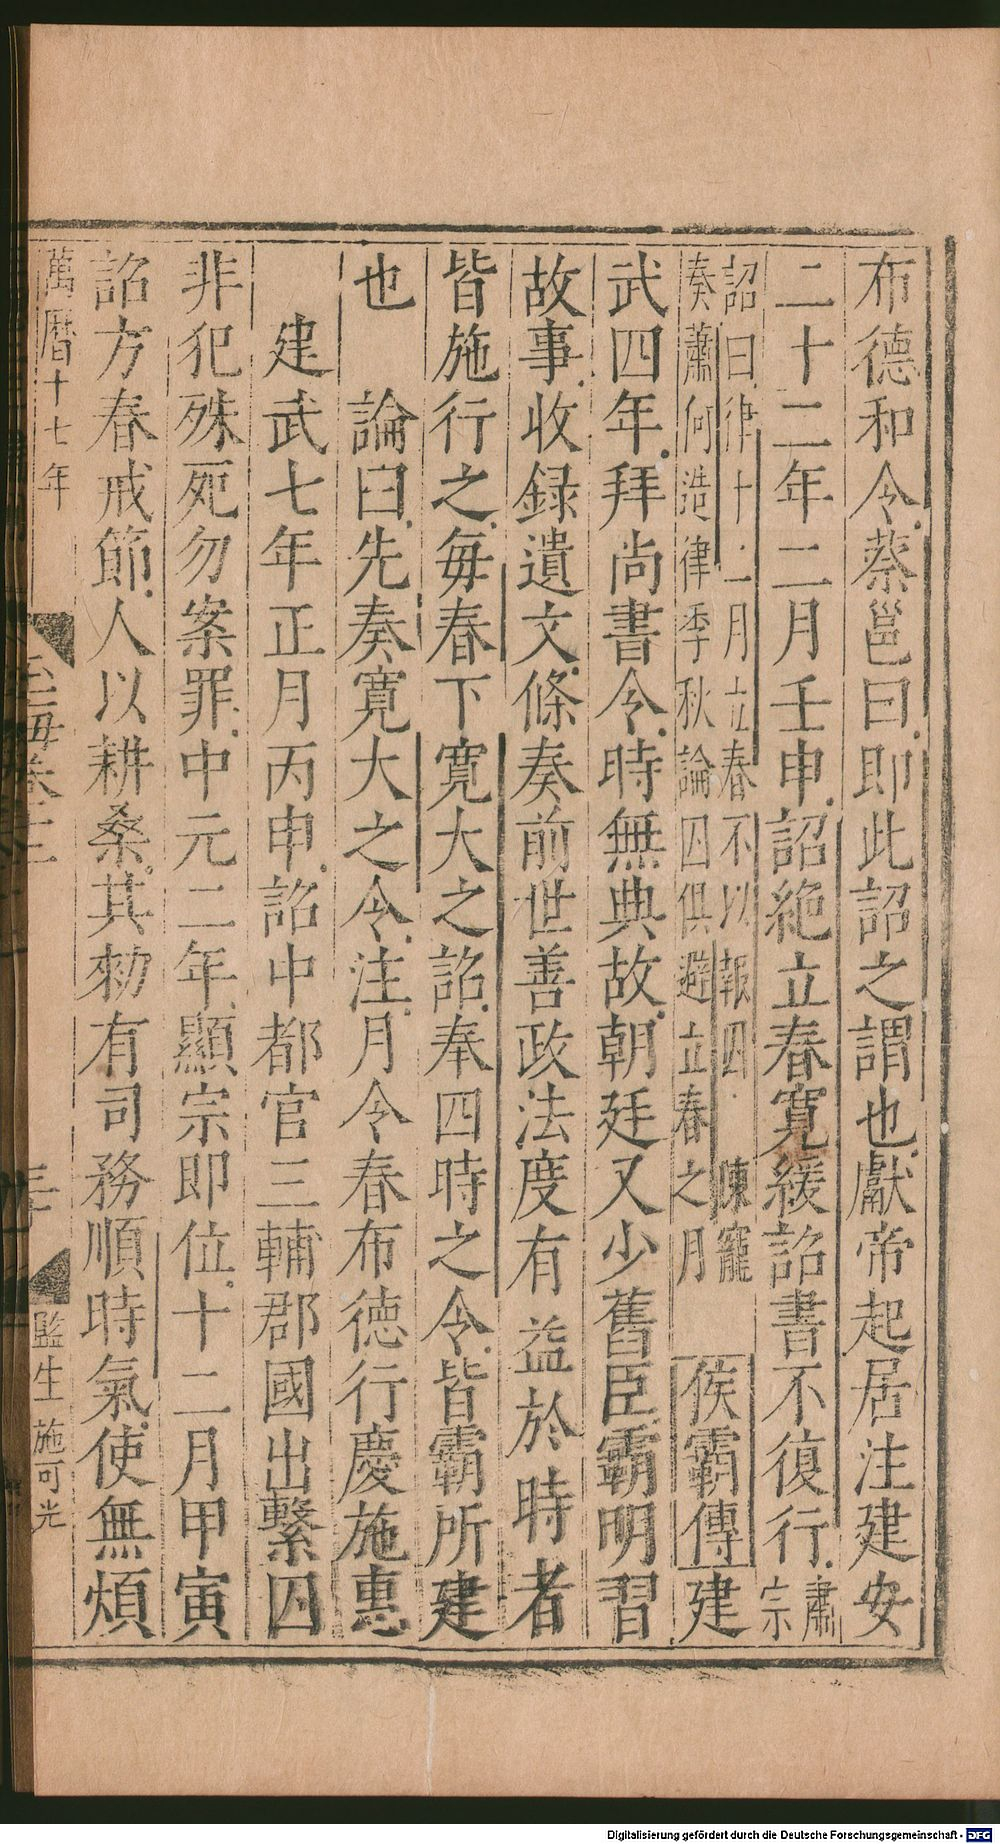 布德和令蔡邕曰即此詔之謂也獻帝起居注建安
二十二年二月壬申詔絶立春寛緩詔書不復行肅宗
詔曰律十二月立春不以報囚陳寵
奏蕭何造律季秋論囚俱避立春之月侯霸傳建
武四年拜尚書令時無典故朝廷又少舊臣霸明習
故事收録遺文條奏前世善政法度有益於時者
皆施行之毎春下寛大之詔奉四時之令皆霸所建
也論曰先奏寛大之令注月令春布徳行慶施惠
建武七年正月丙申詔中都官三輔郡國出繫囚
非犯殊死勿案罪中元二年顯宗即位十二月甲寅
詔方春戒節人以耕桑其勑有司務順時氣使無煩
萬曆十七年
監生施可光
Digitalisierung gefördert durch die Deutsche Forschungsgemeinschaft - DFG